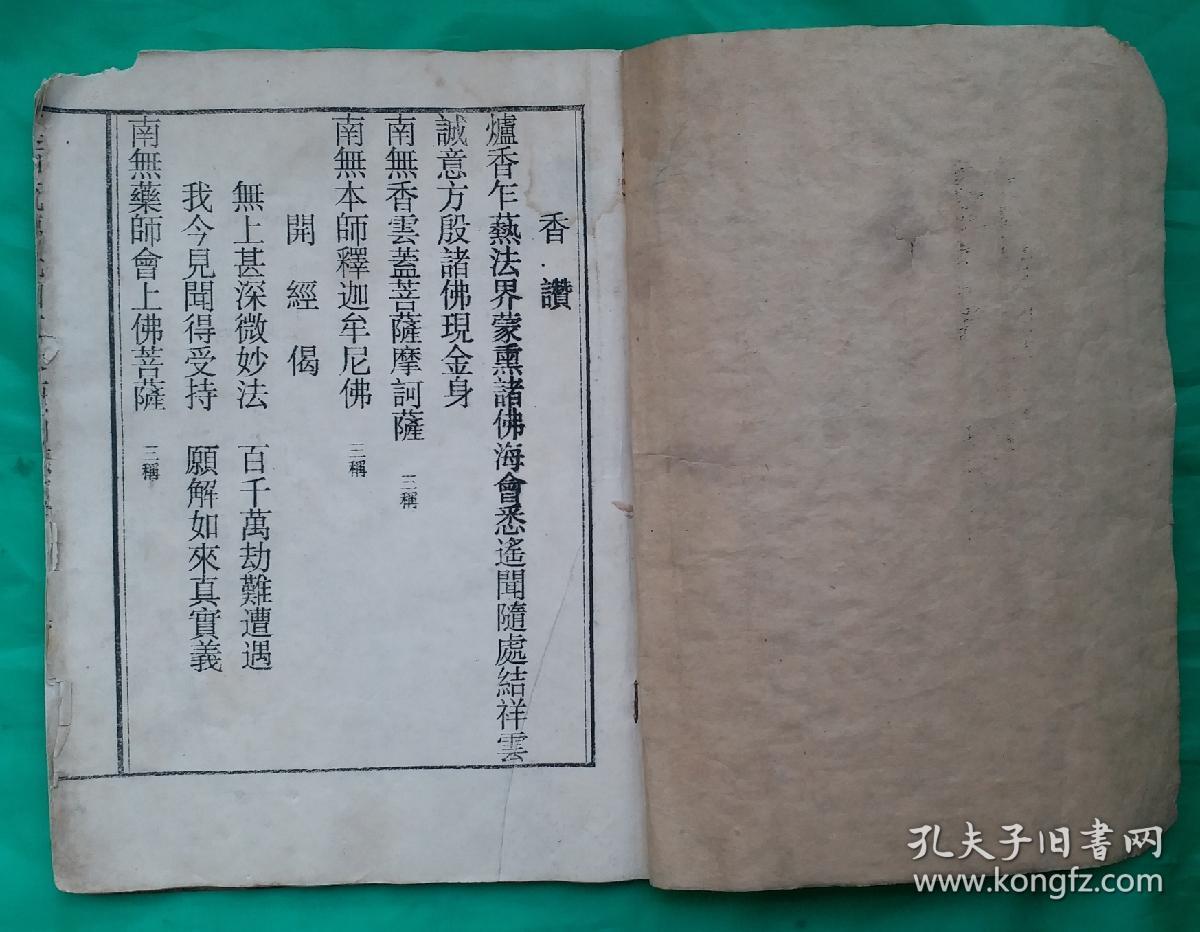 香讚
爐香乍爇法界蒙熏諸佛海會悉遙聞隨處結祥雲
誠意方殷諸佛現金身
南無香雲蓋菩薩摩訶薩 三稱
南無本師釋迦牟尼佛 三稱
開經偈
無上甚深微妙法 百千萬劫難遭遇
我今見聞得受持 願解如來真實義
南無藥師會上佛菩薩 三稱
孔夫子旧书网
www.kongfz.com